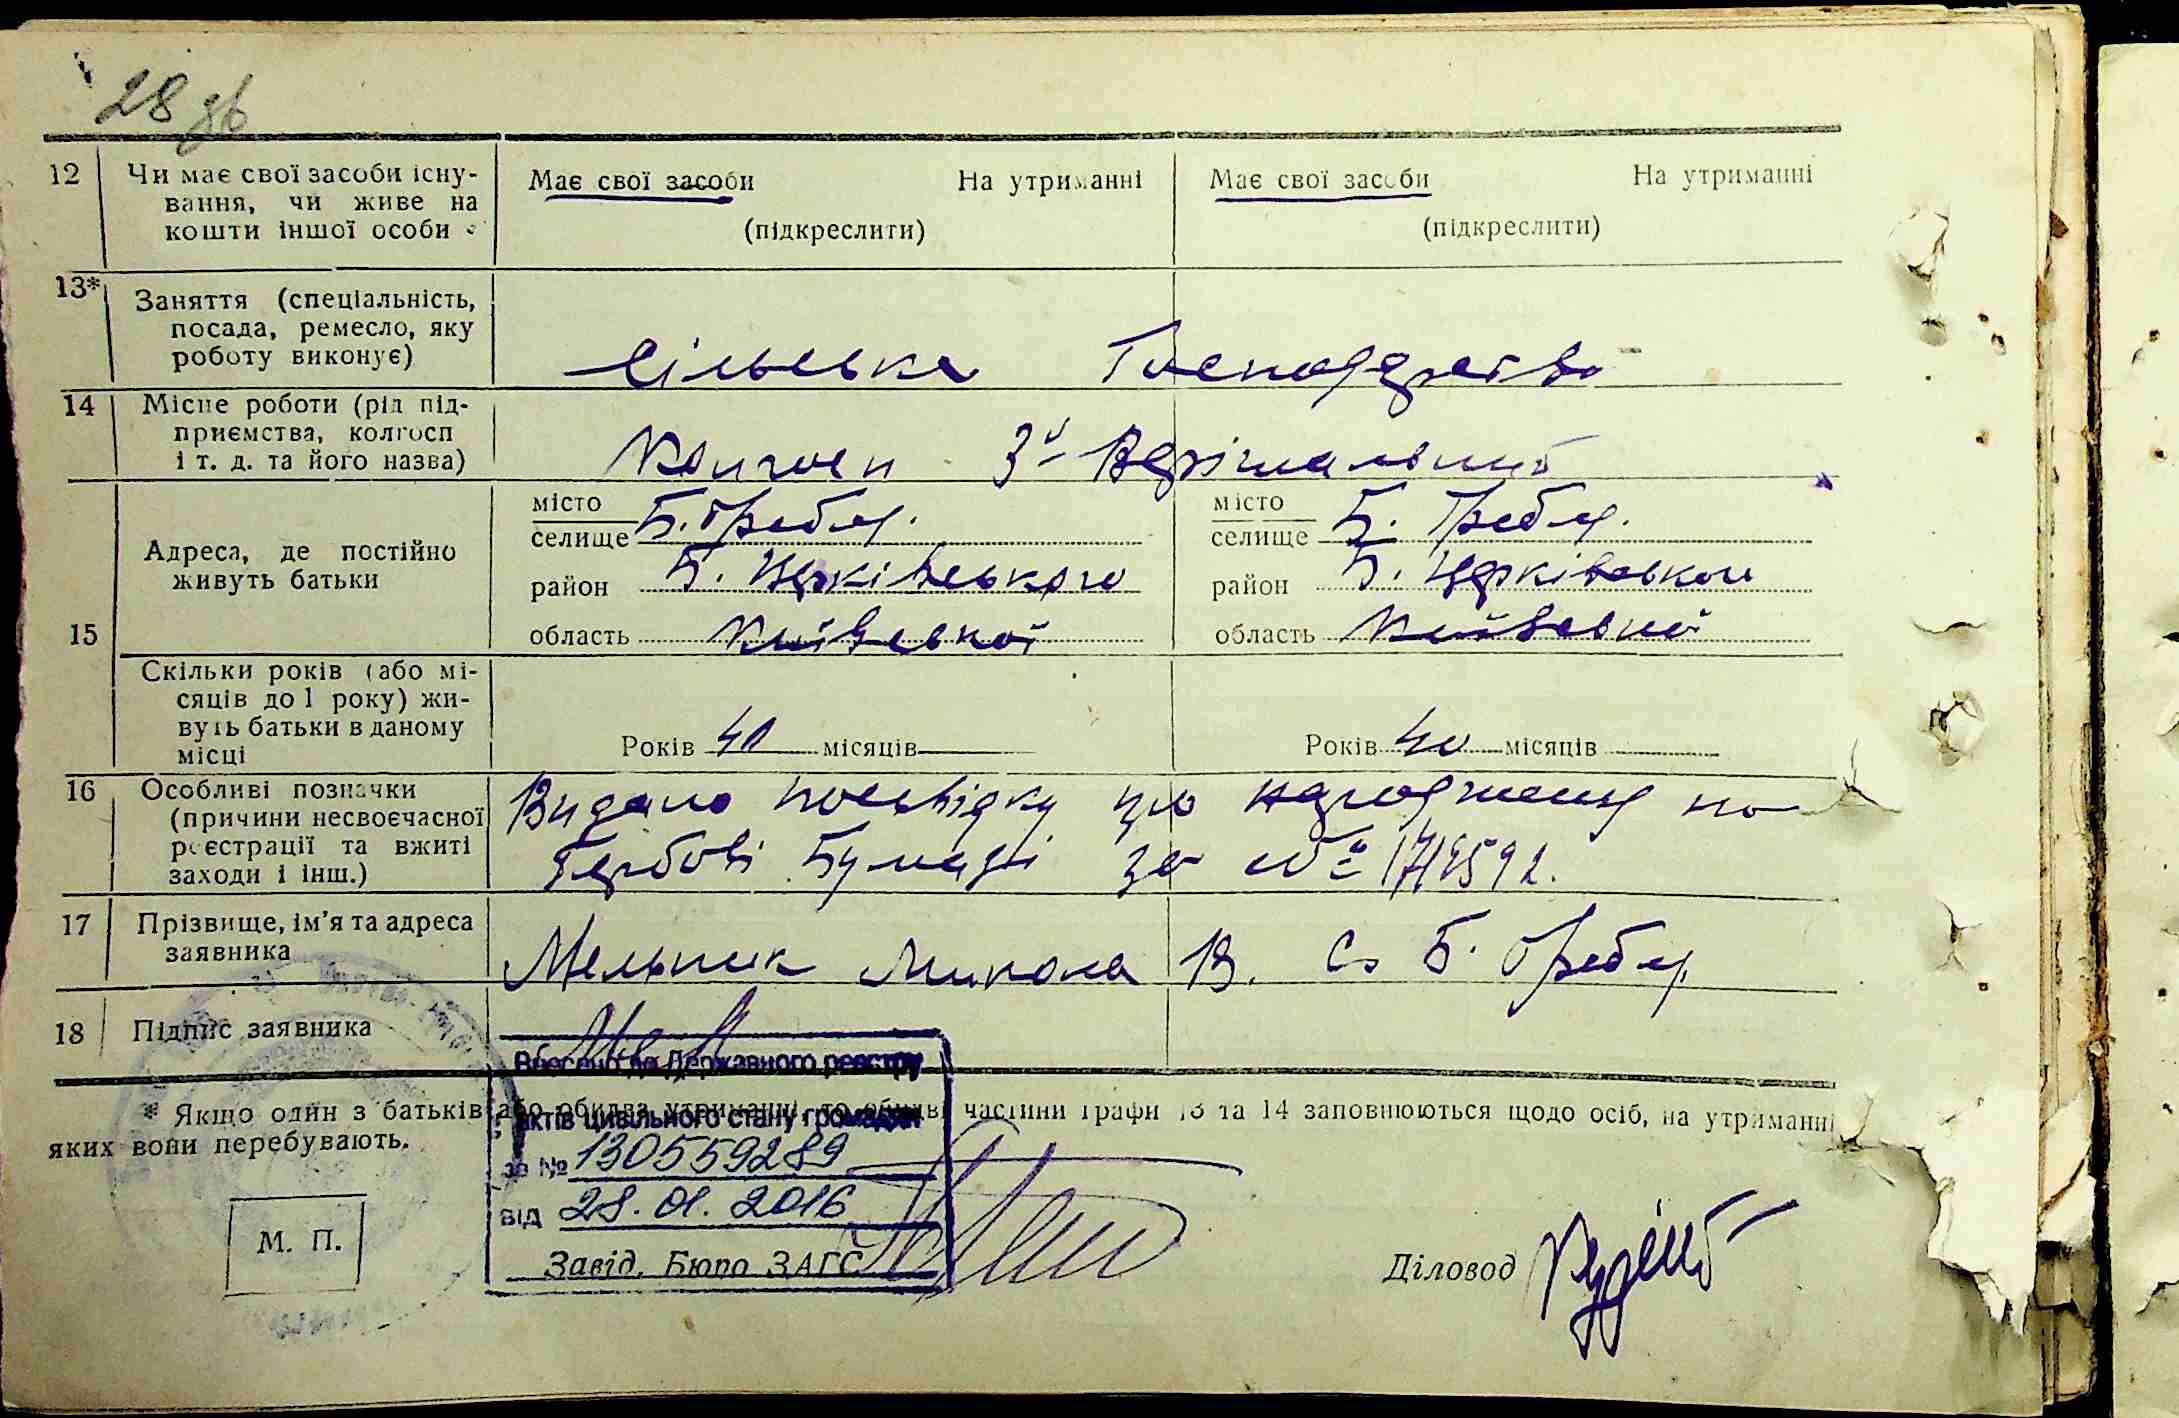 28 зв
12 Чи має свої засоби існу-
вання, чи живе на
кошти іншої особи
Має свої засоби На утриманні
(підкреслити)
Має свої засоби На утриманні
(підкреслити)
13* Заняття (спеціальність,
посада, ремесло, яку
роботу виконує)
Сільське Господарство
14 Місце роботи (рід під-
приємства, колгосп
і т. д. та його назва)
Колгосп 3й Вирішальний
15 Адреса, де постійно
живуть батьки
місто
селище Б. Гребля.
район Б. Церківського
область Київської
місто
селище Б. Гребля.
район Б. Церківського
область Київської
Скільки років (або мі-
сяців до 1 року) жи-
вуть батьки в даному
місці
Років 40 місяців
Років 40 місяців
16 Особливі позначки
(причини несвоєчасної
реєстрації та вжиті
заходи і інш.)
Видано посвідку про народження на
Гербові Бумазі за №
17 Прізвище, ім'я та адреса
заявника
Мельник Микола В. С. Б. Гребля
18 Підпис заявника
Внесено до Державного реєстру
актів цивільного стану громадян
за № 130559289
від 28.01.2016
* Якщо один з батьків або обидва утриманці, то обидві частини графи 13 та 14 заповнюються щодо осіб, на утриманні
яких вони перебувають.
М. П.
Завід. Бюро ЗАГС
Діловод